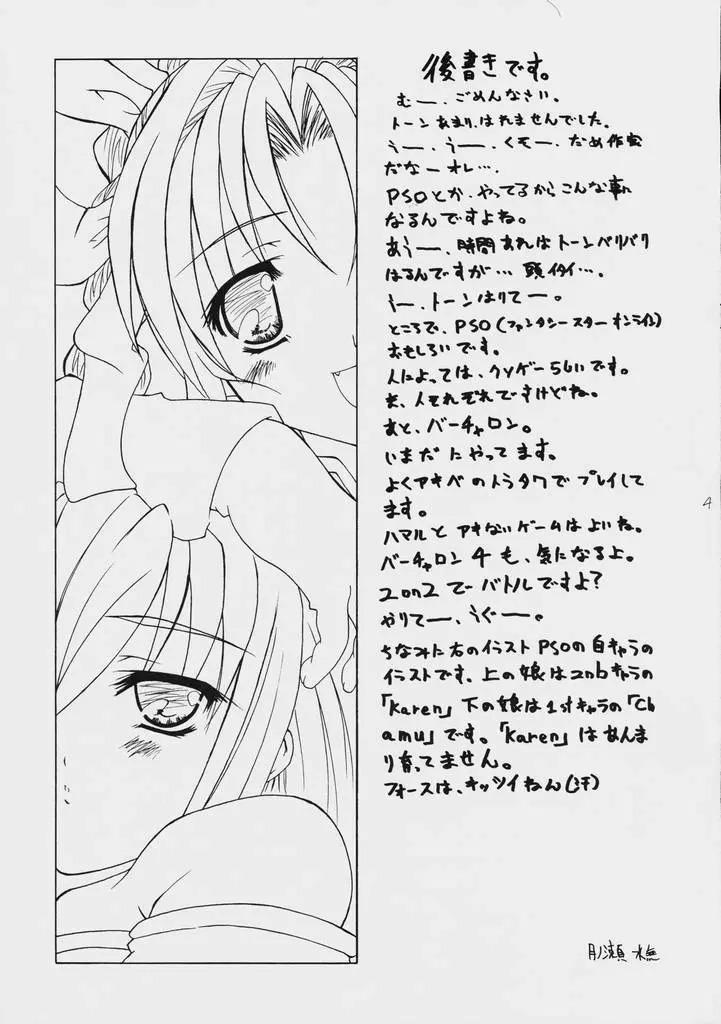 後書きです。
むー、ごめんなさい。
トーンあまり、はれませんでした。
うー、うー、くそー、だめ作家
だなーオレ…。
PSOとか、やってるからこんな事に
なるんですよね。
あうー、時間あればトーンバリバリ
はるんですが…頭イタイ…。
うー、トーンはりてー。
ところで、PSO(ファンタシースターオンライン)
おもしろいです。
人によっては、クソゲーらしいです。
ま、人それぞれですけどね。
あと、バーチャロン。
いまだにやってます。
よくアキバのトラタワでプレイして
ます。
ハマルとアキないゲームはよいね。
バーチャロン4も、気になるよ。
2on2でバトルですよ?
やりてー、うぐー。
ちなみに右のイラストPSOの自キャラの
イラストです、上の娘は2ndキャラの
「Karen」下の娘は1stキャラの「Ch
amu」です。「Karen」はあんま
り育ってません。
フォースは、キッツイねん(汗)
4
月ノ瀬